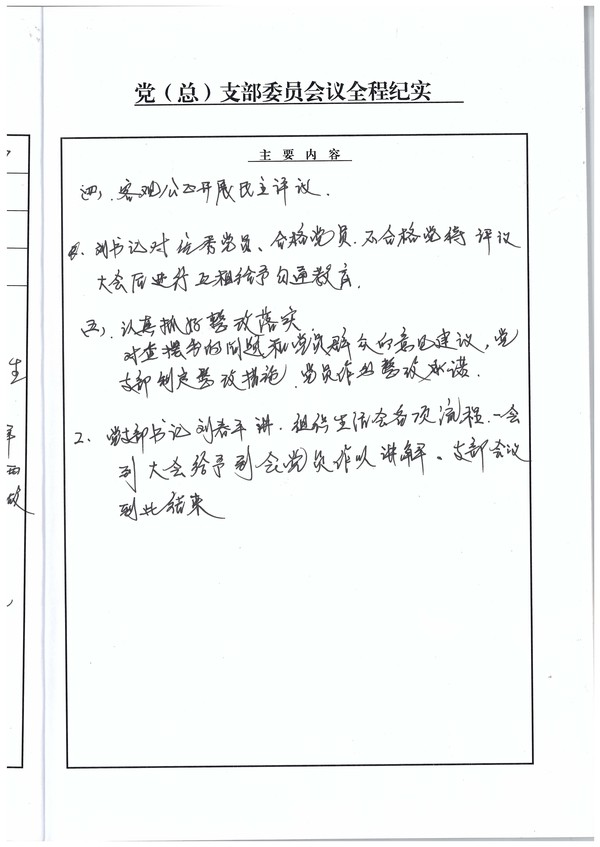 党（总）支部委员会议全程纪实
主要内容
四、客观公正开展民主评议.
刘书记对优秀党员、合格党员.不合格党待 评议
大会后进行互相给予勾通教育.
五、认真抓好整改落实
对查摆出的问题和党员群众的意见建议，党
支部制定整改措施.党员作出整改承诺.
2、党支部书记刘春平讲.组织生活会各项流程.一会
到大会给予到会党员作以讲解、支部会议
到此结束
生